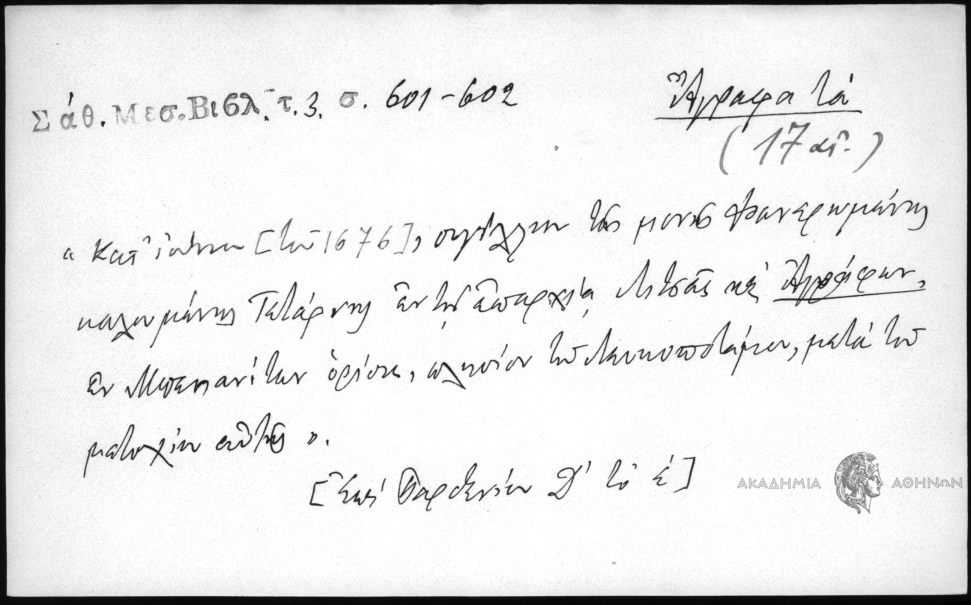 Σάθ. Μεσ. Βιβλ. τ. 3. σ. 601-602
Ἄγραφα τὰ
(17 αἰ.)
« Κατ' Ἰούνιον [τοῦ 1676], σιγίλλιον τῆς μονῆς Φανερωμένης
καλουμένης Τατάρνης ἐν τῇ ἐπαρχίᾳ Λιτσᾶς καὶ Ἀγράφων,
ἐν ὁρίοις, πλησίον τοῦ Λευκοποτάμου, μετὰ τοῦ
μετοχίου αὐτῆς ».
[Ἐπὶ Παρθενίου Δ' τὸ έ]
ΑΚΑΔΗΜΙΑ ΑΘΗΝΩΝ